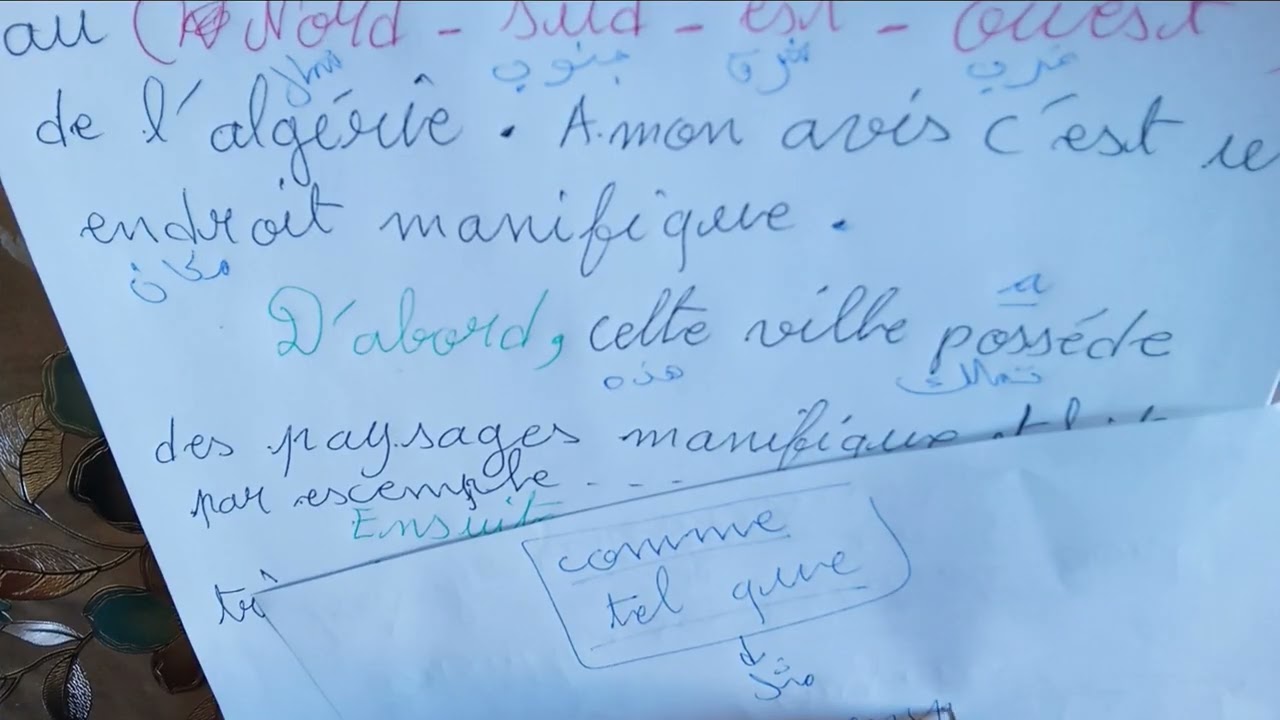 au (Nord - Sud - est - Ouest
شمال جنوب شرق غرب
de l'algérie . A mon avis c'est
endroit manifique .
مكان
a
D'abord, cette ville posséde
هذه تمتلك
des paysages manifique
par escemple ...
Ensuit
comme
tel que
مثل